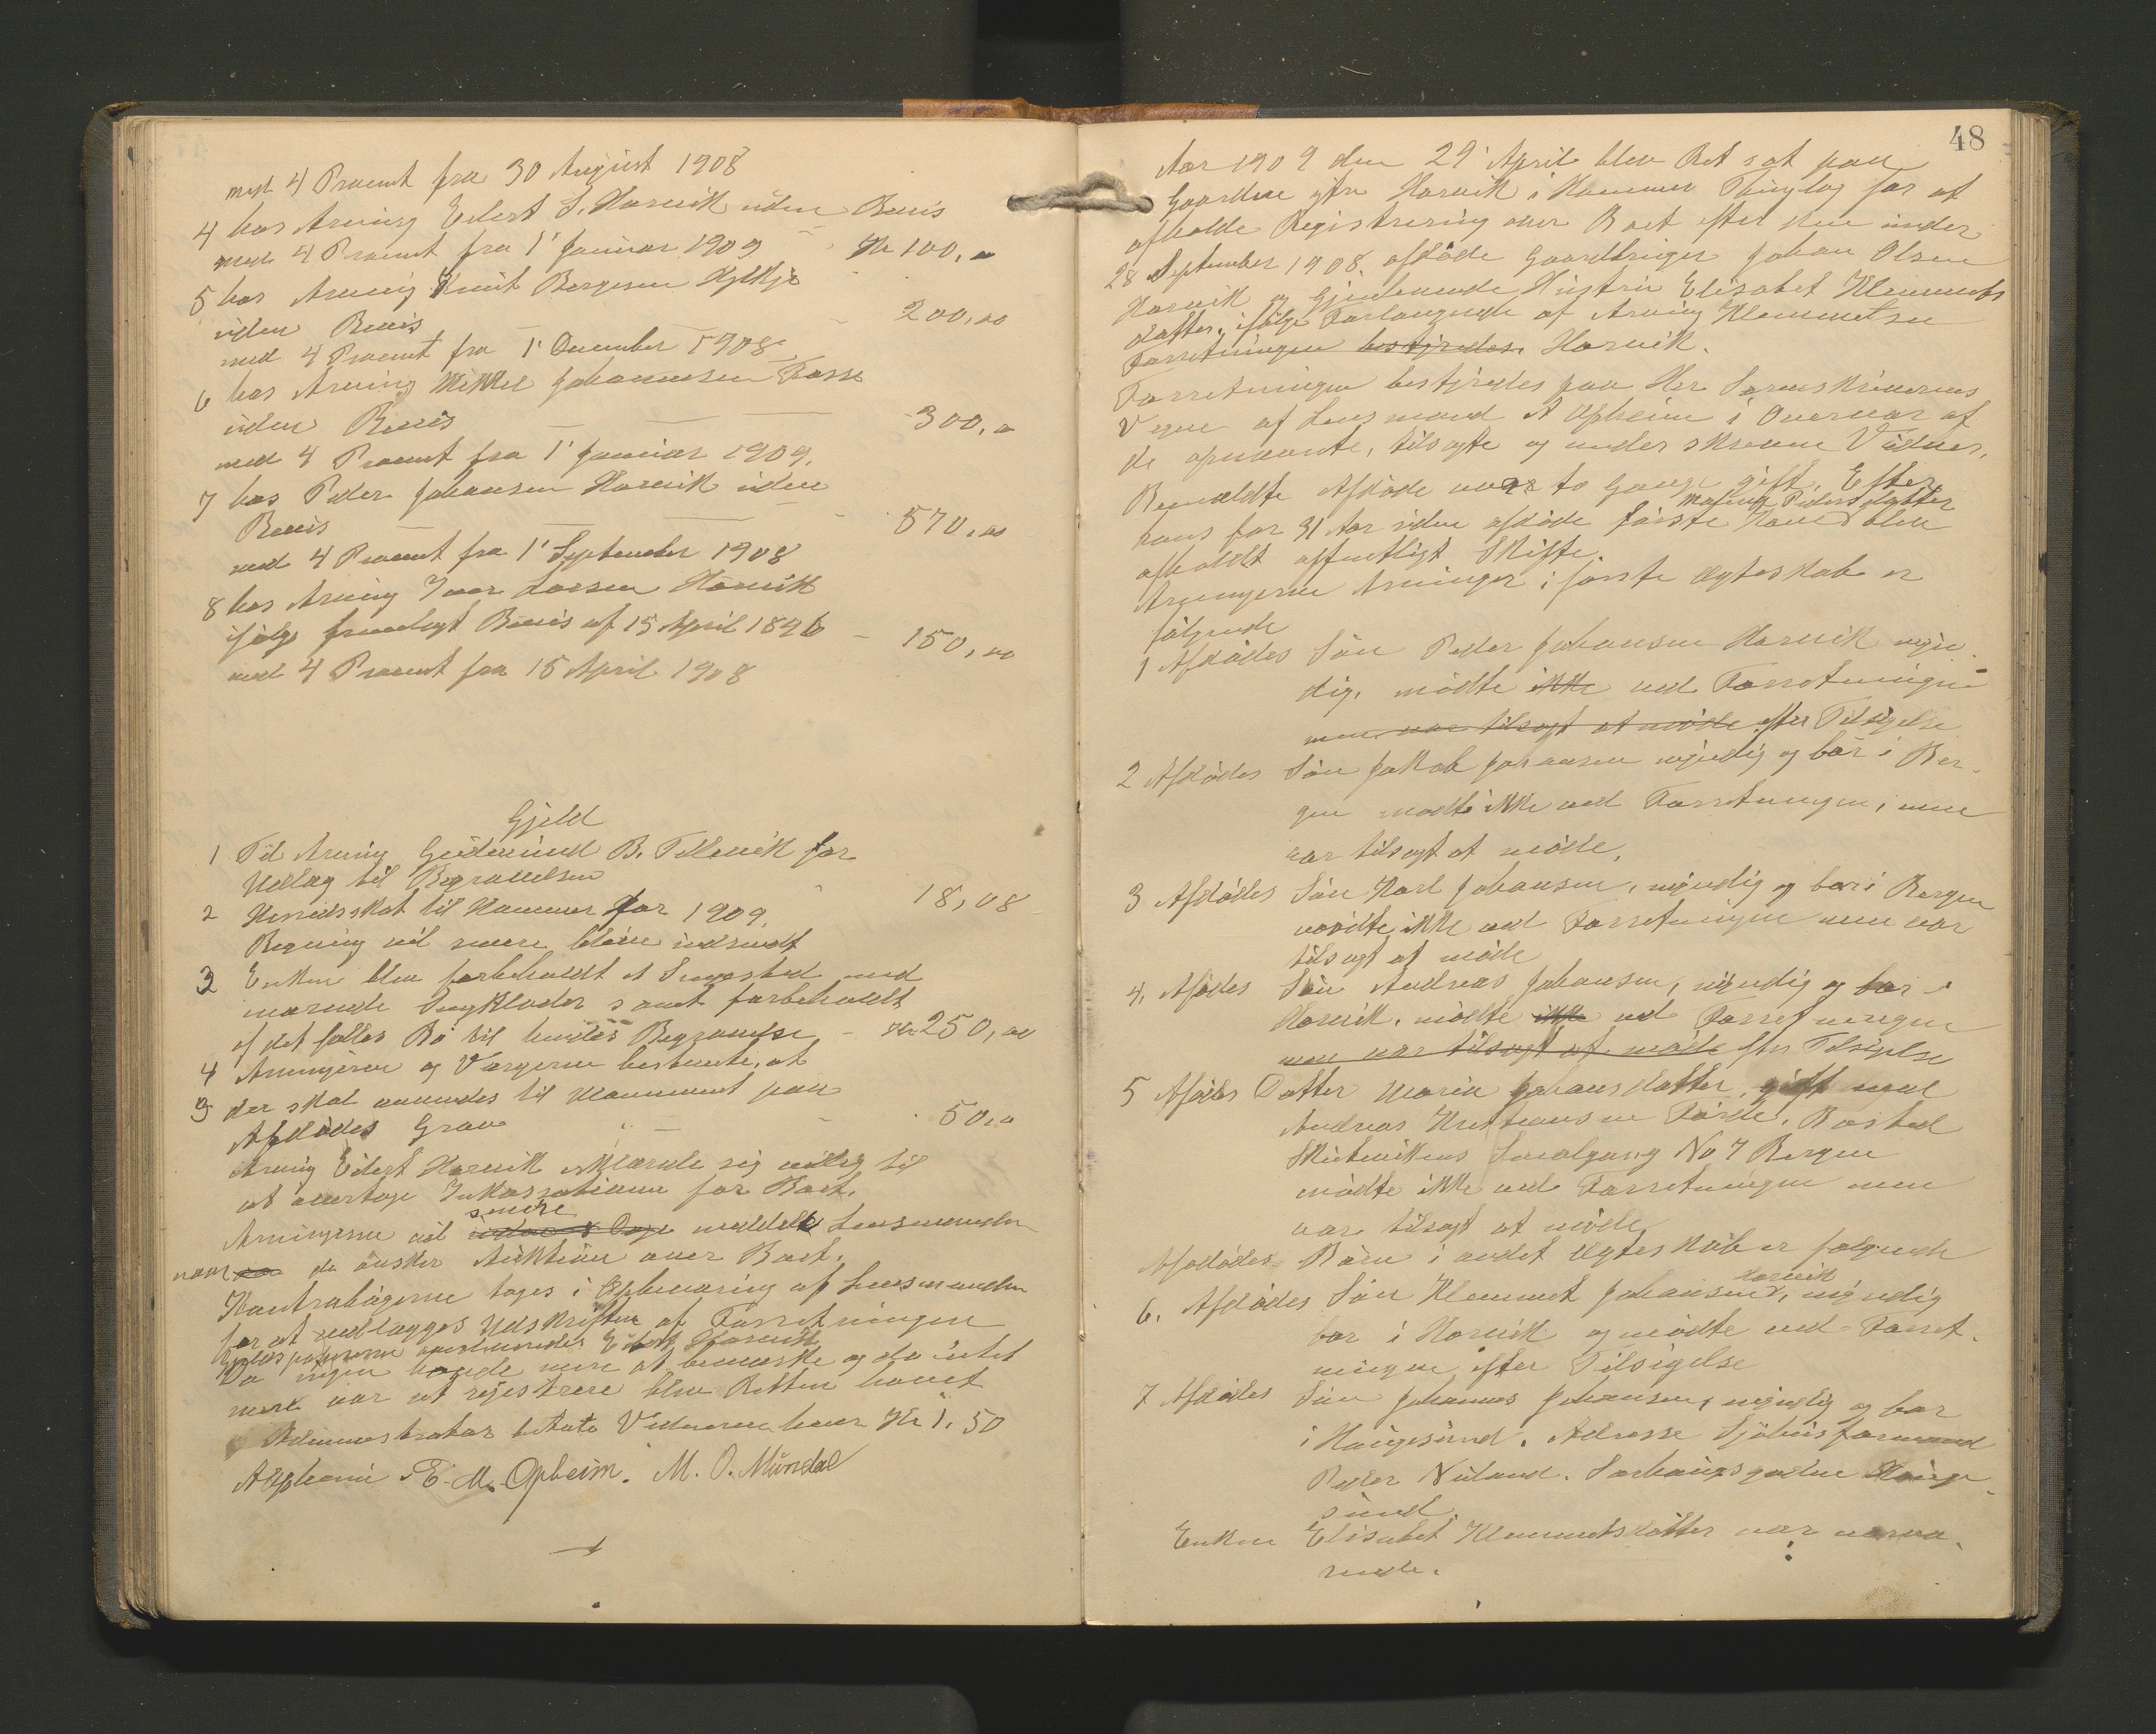 med 4 Procent fra 30 August 1908
4 hos Arving Eilert S. Hornvik uden Bevis
med 4 Procent fra 1' Januar 1909 Kr 100,00
5 hos Arving Knut Borgesen Hylkje
uden Bevis 200,00
med 4 Procent fra 1' December 1908
6 hos Arving Mikkel Johannesen Fosse
uden Bevis 300,00
med 4 Procent fra 1' Januar 1909.
7 hos Peder Johansen Hornvik uden
Bevis 570,00
med 4 Procent fra 1' September 1908
8 hos Arving Ivar Larsen Hornvik
ifølge fremlagt Bevis af 15 April 1896 150,00
med 4 Procent fra 15 April 1908
Gjeld
1 Til Arving Gudmund B. Tellevik for
Udlæg til Begravelsen 18,08
2 Herredsskat til Hammer for 1909.
Regning vil senere blive indsendt
3 Enken blev forbeholdt et Sengested med
værende Sengklæder samt forbeholdt
af det fælles Bo til hendes Begravelse Kr 250,00
4 Arvingerne og Værgerne bestemte, at
der skal anvendes til Monument paa
Afdødes Grav 50,00
Arving Eilert Hornvik erklærede sig villig til
at overtage Inkassationen for Boet.
Arvingerne vil senere meddele Lensmanden
naar de ønsker Auktion over Boet.
Kontrabøgerne toges i Opbevaring af Lensmanden
for at vedlægges Udskriften af Forretningen
Eilert Hornvik
Da ingen havde mere at bemærke og da intet
mere var at registrere blev Retten hævet
Administrator betalte Vidnerne hver Kr 1,50
A Opheim E. M. Opheim. M. O. Mundal
48
Aar 1909 den 29' April blev Ret sat paa
Gaarden ytre Hornvik i Hammer Thinglag for at
afholde Registrering over Boet efter den under
28 September 1908 afdøde Gaardbruger Johan Olsen
Hornvik og Gjenlevende Hustru Elisabet Klemmets
datter, ifølge Forlangende af Arving Klemmetsen
Forretningen bestyredes. Hornvik.
Forretningen bestyredes paa Hr. Sorenskriverens
Vegne af Lensmand A Opheim i Overvær af
de opnævnte, tilsagte og underskrevne Vidner.
Bemeldte Afdøde var to Gange gift. Efter
hans for 31 Aar siden afdøde første Kone Pedersdatter blev
afholdt offentligt Skifte.
Arvingerne i første Ægteskab er
følgende
1 Afdødes Søn Peder Johansen Hornvik myn-
dig, mødte ikke ved Forretningen
men var tilsagt at møde efter Tilsigelse
2 Afdødes Søn Jakob Johansen myndig og bor i Ber-
gen mødte ikke ved Forretningen, men
var tilsagt at møde.
3 Afdødes Søn Karl Johansen, myndig og bor i Bergen
mødte ikke ved Forretningen men var
tilsagt at møde
4. Afdødes Søn Andreas Johansen, myndig og bor i
Hornvik, mødte ikke ved Forretningen
men var tilsagt at møde efter Tilsigelse
5 Afdødes Datter Marie Johansdatter, gift med
Andreas Kristiansen Førde, Bosted
Skuteviken No 7 Bergen
mødte ikke ved Forretningen men
var tilsagt at møde
Afdødes Børn i andet Ægteskab er følgende
6. Afdødes Søn Klemmet Johansen Hornvik, myndig
bor i Hornvik og mødte ved Forret-
ningen efter Tilsigelse
7 Afdødes Søn Johannes Johansen, myndig og bor
i Haugesund. Adresse Sjøhusformand
Peder Nuland. Sørhaugsgaden Hauge-
sund.
Enken Elisabet Klemmetsdatter var nærvæ-
rende.